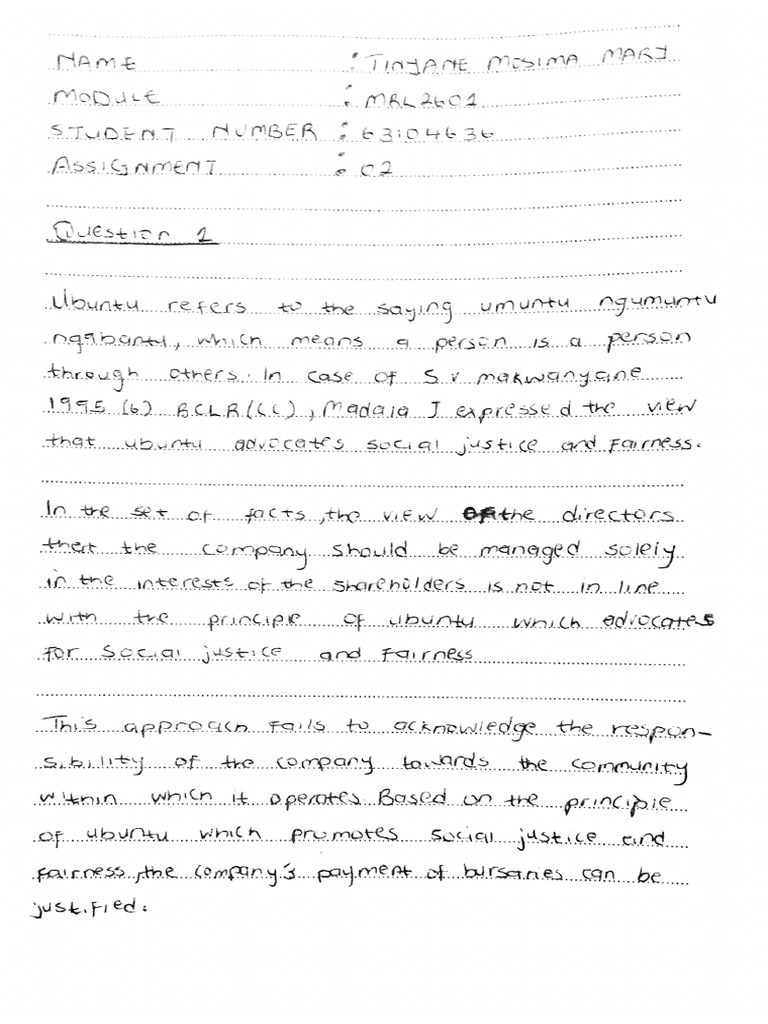 NAME : TINYANE MOSIMA MARY
MODULE : MRL2601
STUDENT NUMBER : 63104636
ASSIGNMENT : 02
Question 1
Ubuntu refers to the saying umuntu ngumuntu
ngabantu, which means a person is a person
through others. In case of S v makwanyane
1995 (6) BCLR (CC), Madala J expressed the view
that ubuntu advocates social justice and fairness.
In the set of facts, the view of the directors
that the company should be managed solely
in the interests of the shareholders is not in line
with the principle of ubuntu which advocates
for social justice and fairness
This approach fails to acknowledge the respon-
sibility of the company towards the community
within which it operates. Based on the principle
of ubuntu which promotes social justice and
fairness, the company's payment of bursaries can be
justified.